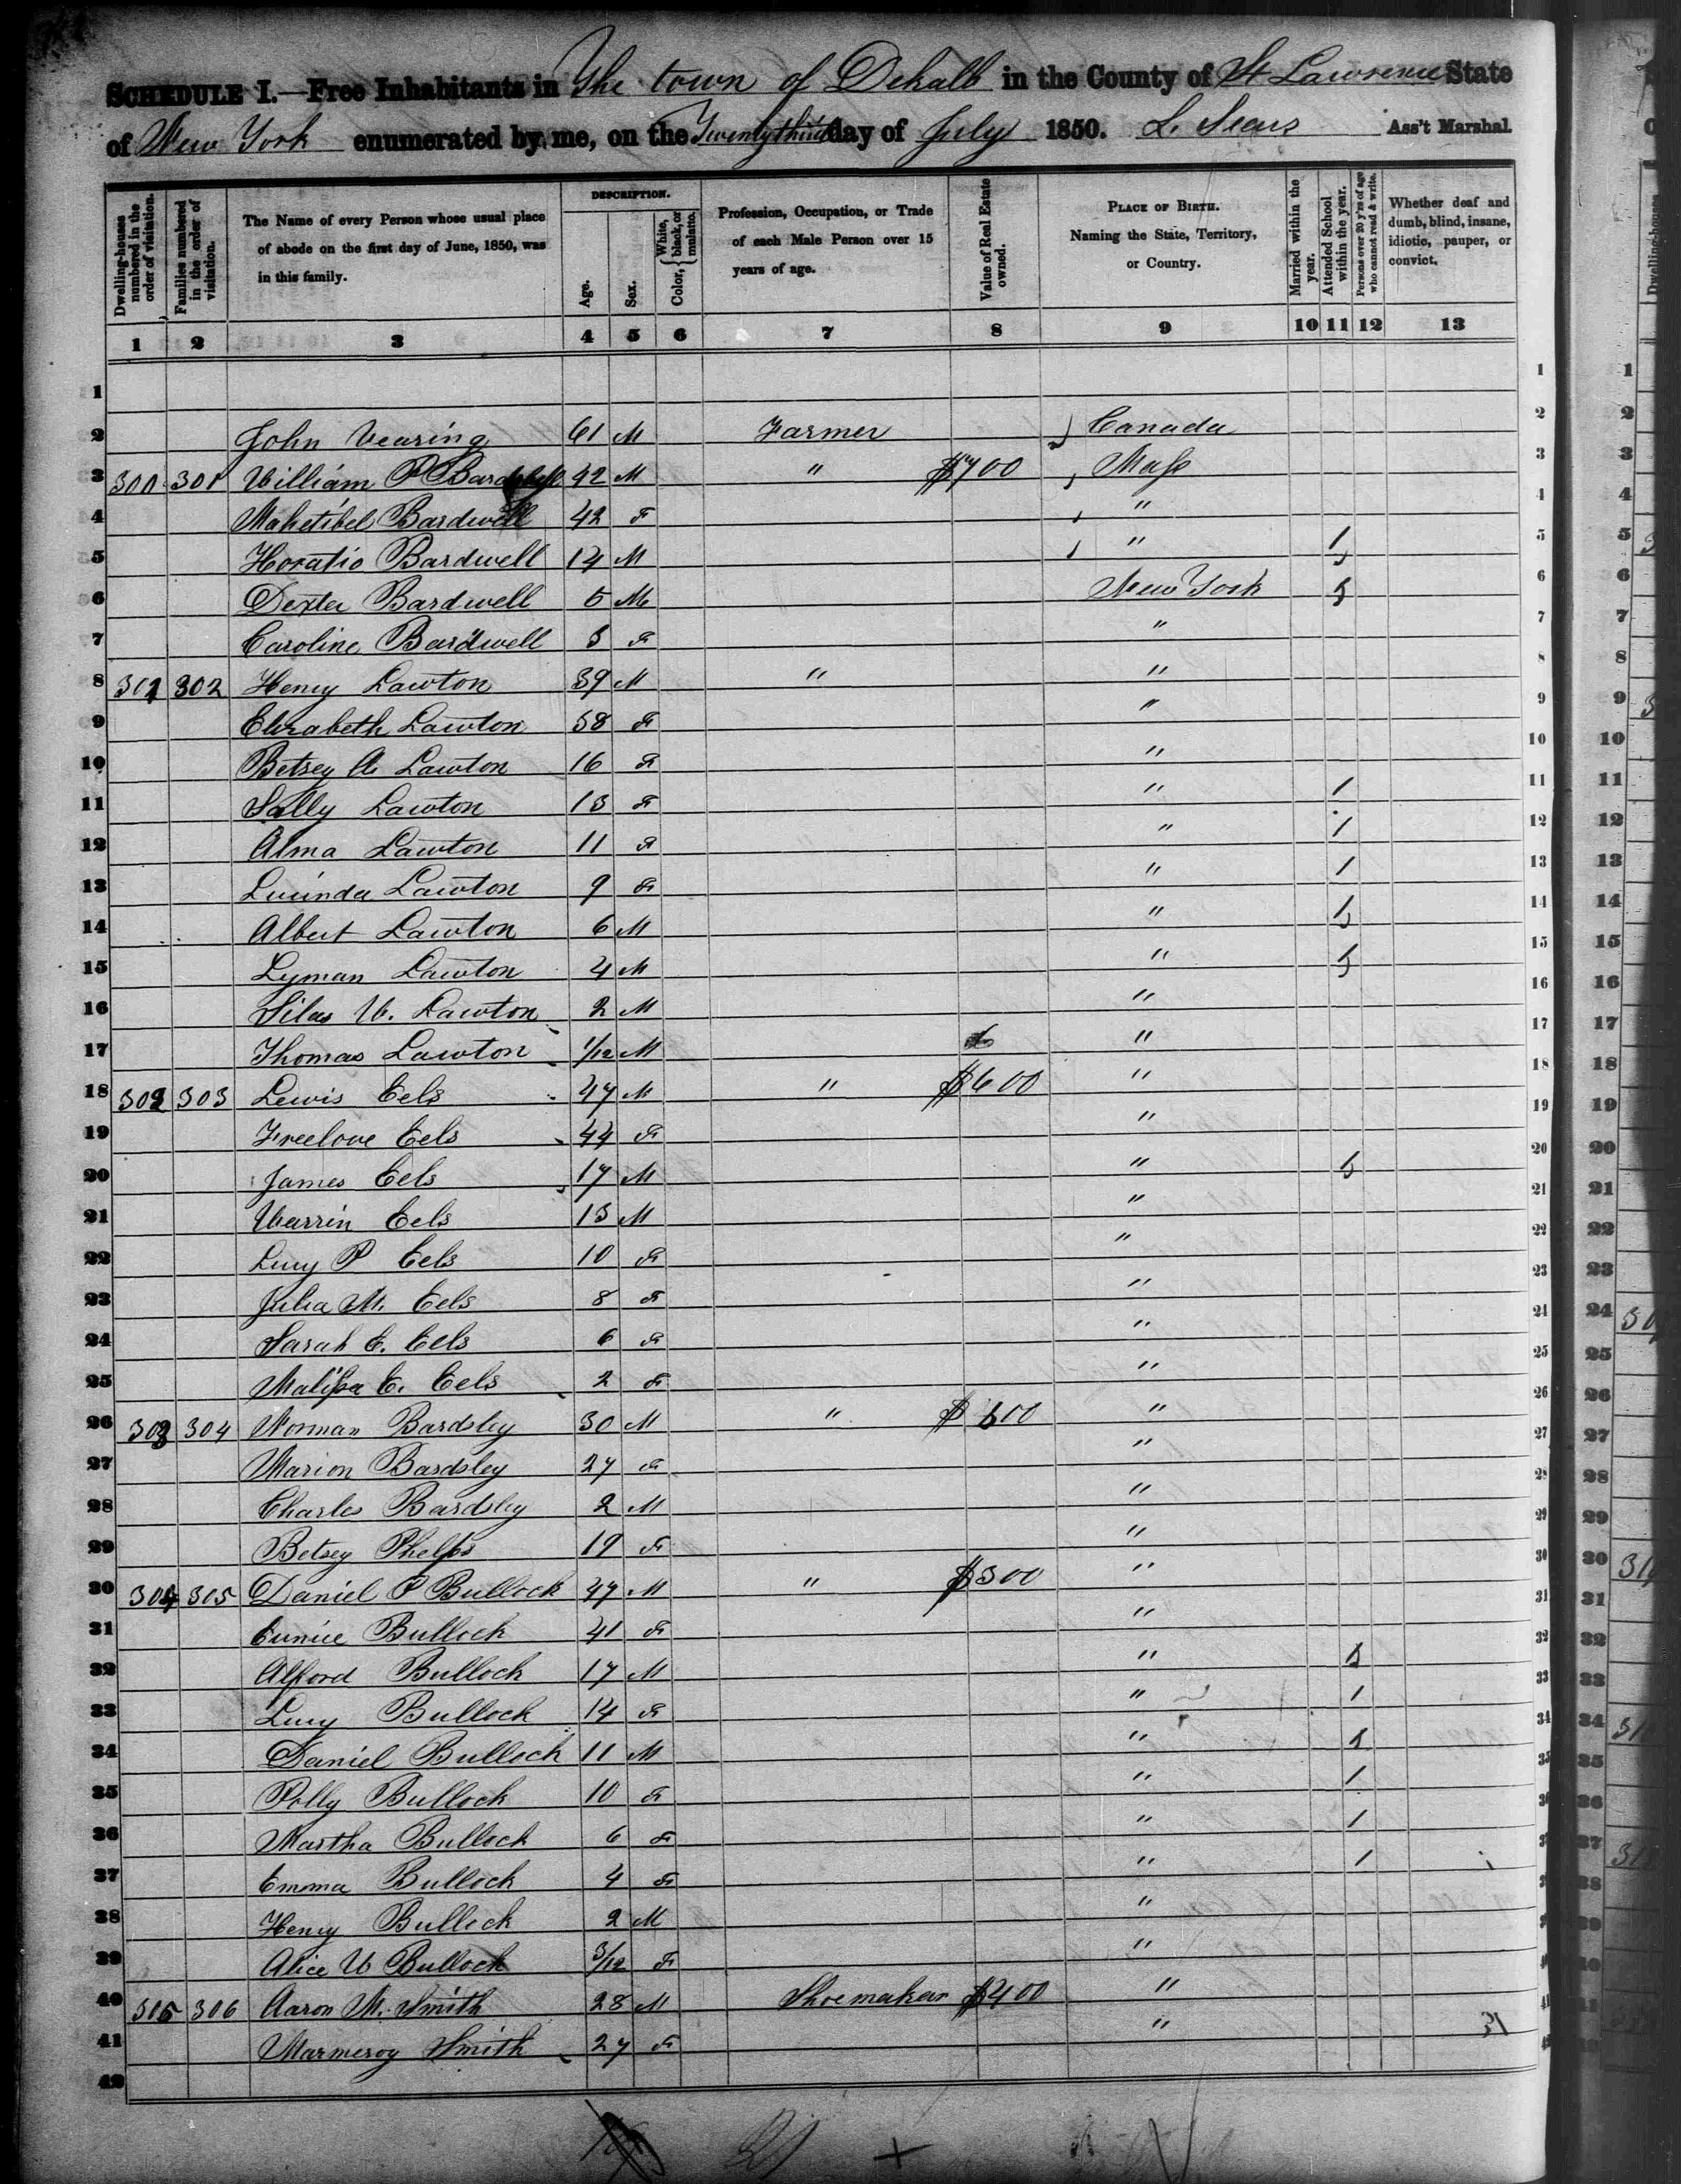 SCHEDULE I.—Free Inhabitants in The town of Dekalb in the County of St Lawrence State
of New York enumerated by me, on the Twenty third day of July 1850. L. Sears Ass't Marshal.
Dwelling-houses numbered in the order of visitation.
Families numbered in the order of visitation.
The Name of every Person whose usual place of abode on the first day of June, 1850, was in this family.
DESCRIPTION.
Age.
Sex.
Color, { White, black, or mulatto.
Profession, Occupation, or Trade of each Male Person over 15 years of age.
Value of Real Estate owned.
PLACE OF BIRTH.
Naming the State, Territory, or Country.
Married within the year.
Attended School within the year.
Persons over 20 y'rs of age who cannot read & write.
Whether deaf and dumb, blind, insane, idiotic, pauper, or convict.
1 2 3 4 5 6 7 8 9 10 11 12 13
1 1
2 John 61 M Farmer Canada 2
3 300 301 William P 42 M " $700 Mass 3
4 Mahetibel Bardwell 42 F " 4
5 Horatio Bardwell 14 M " 1 5
6 Dexter Bardwell 5 M New York 1 6
7 Caroline Bardwell 3 F " 7
8 301 302 Henry Lawton 39 M " " 8
9 Elizabeth Lawton 38 F " 9
10 Betsey A. Lawton 16 F " 10
11 Sally Lawton 13 F " 1 11
12 Alma Lawton 11 F " 1 12
13 Lucinda Lawton 9 F " 1 13
14 Albert Lawton 6 M " 1 14
15 Lyman Lawton 4 M " 1 15
16 Silas W. Lawton 2 M " 16
17 Thomas Lawton 1/12 M " 17
18 302 303 Lewis Eels 47 M " $600 " 18
19 Freelove Eels 44 F " 19
20 James Eels 17 M " 1 20
21 Warrin Eels 13 M " 21
22 Lucy P Eels 10 F " 22
23 Julia M. Eels 8 F " 23
24 Sarah E. Eels 6 F " 24
25 Malissa E. Eels 2 F " 25
26 303 304 Norman Bardsley 30 M " $ " 26
27 Marion Bardsley 27 F " 27
28 Charles Bardsley 2 M " 28
29 Betsey Phelps 19 F " 29
30 304 305 Daniel P Bullock 47 M " $300 " 30
31 Eunice Bullock 41 F " 31
32 Alford Bullock 17 M " 1 32
33 Lucy Bullock 14 F " 1 33
34 Daniel Bullock 11 M " 1 34
35 Polly Bullock 10 F " 1 35
36 Martha Bullock 6 F " 1 36
37 Emma Bullock 4 F " 1 37
38 Henry Bullock 2 M "
39 Alice W Bullock 3/12 F "
40 305 306 Aaron M. Smith 28 M Shoemaker $400 "
41 Smith 27 F "
42